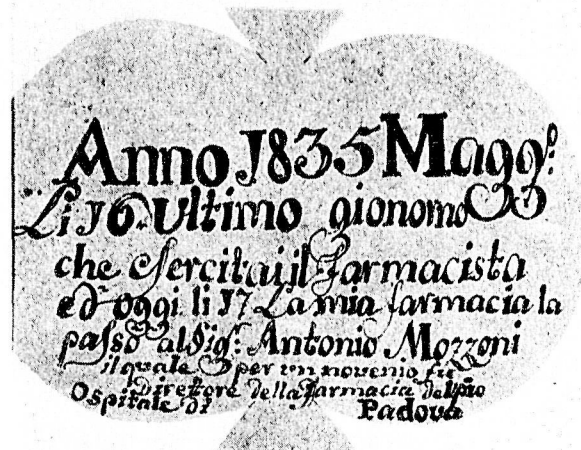 Anno 1835 Maggº:
Li 16 Ultimo gionomo
che esercitai il farmacista
ed oggi li 17 La mia farmacia la
passo al Sigr: Antonio Mozzoni
il quale per un novenio fu
Direttore della Farmacia del pio
Ospitale di Padova